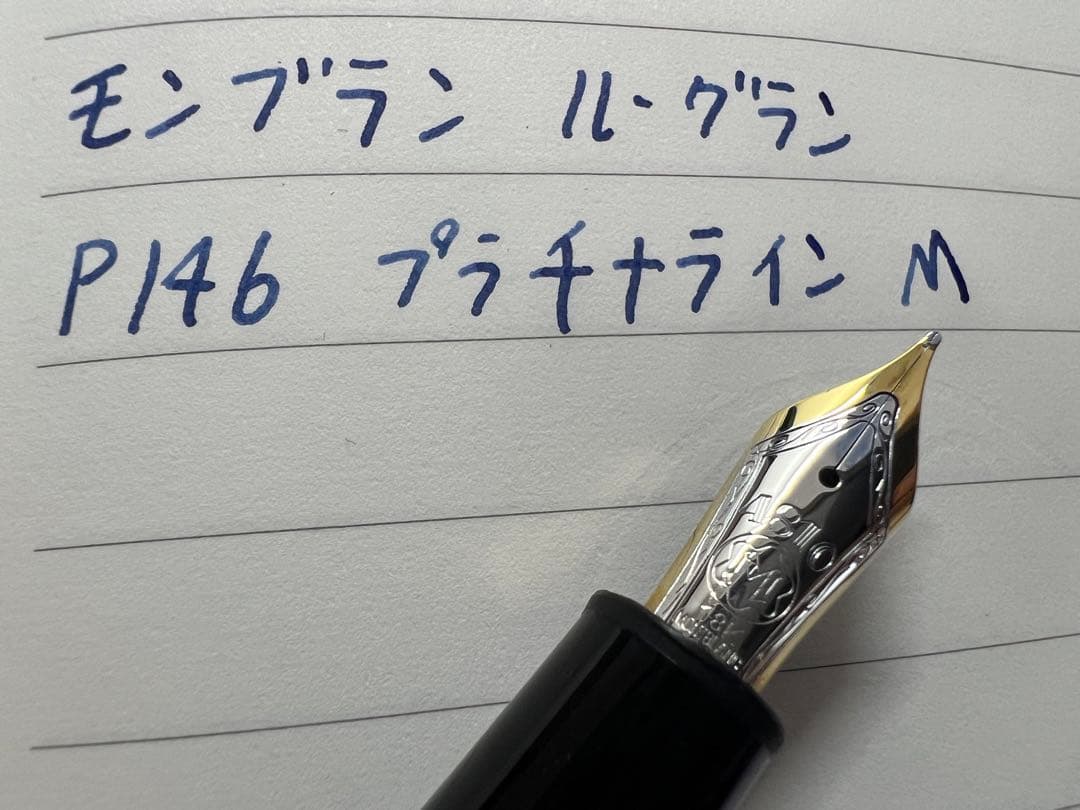 モンブラン ル・グラン
P146 プラチナライン M